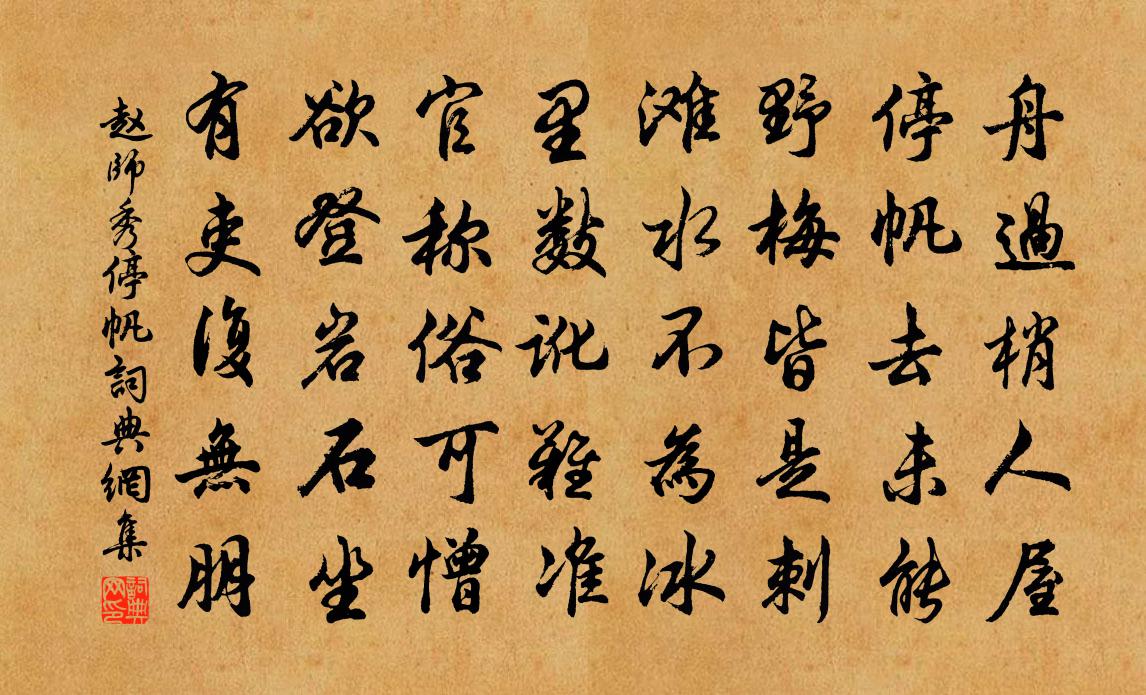 舟過梢人屋
停帆去未能
野梅皆是刺
滩水不為冰
里数訛難准
官称俗可憎
欲登岩石坐
有吏復無朋
赵師秀停帆詞典網集
詞典网印